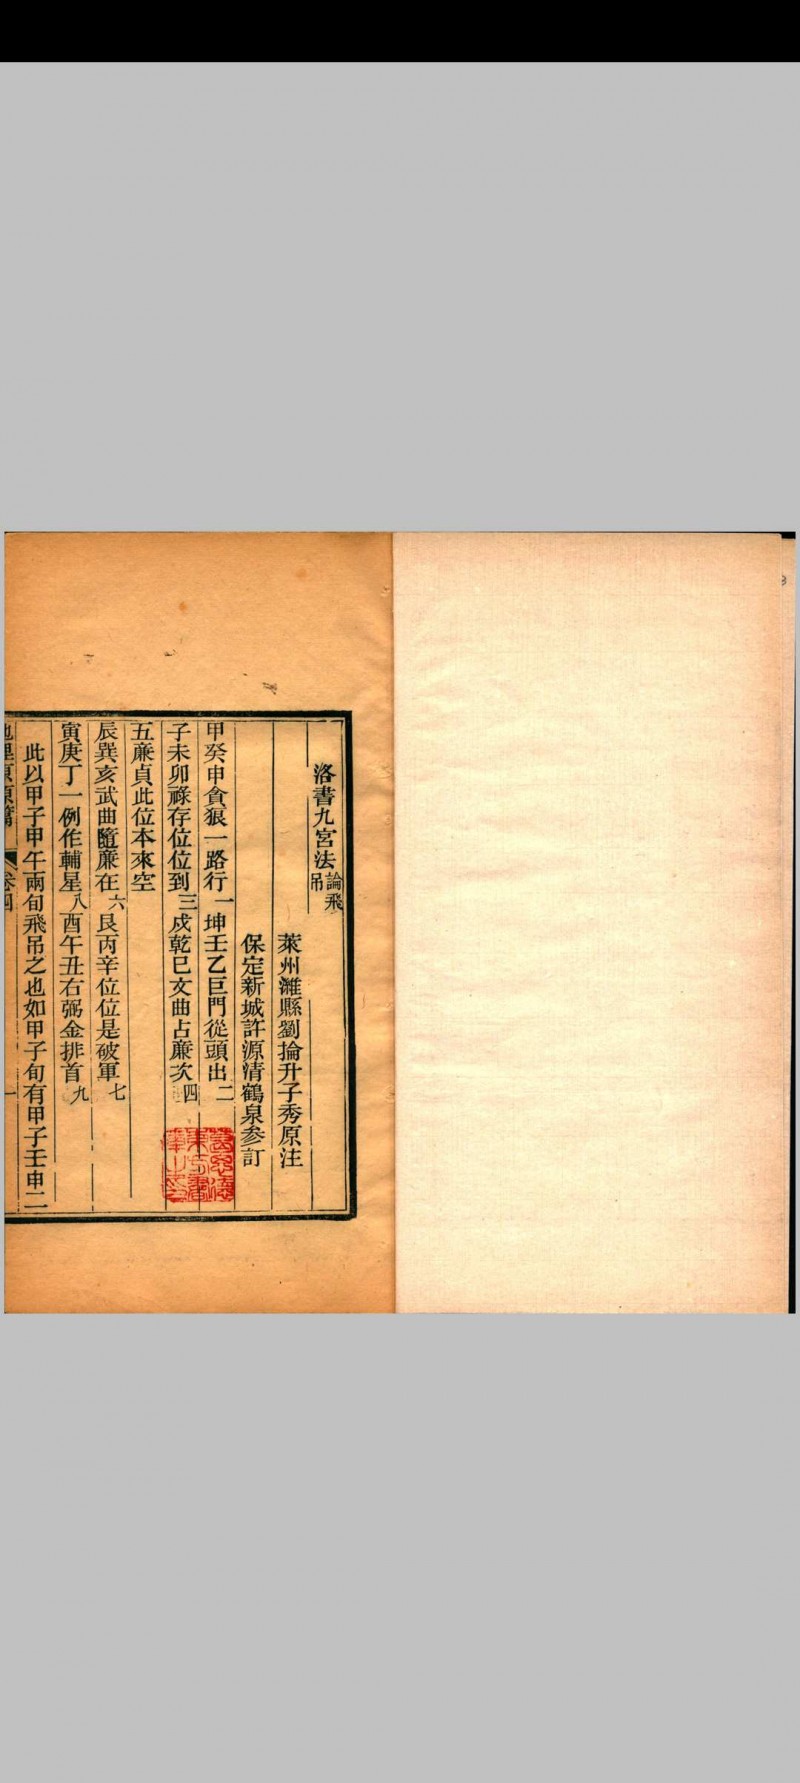 洛書九宮法論飛吊
萊州濰縣劉掄升子秀原注
保定新城許源清鶴泉參訂
甲癸申貪狼一路行一坤壬乙巨門從頭出二
子未卯祿存位位到三戌乾巳文曲占廉次四
五廉貞此位本來空
辰巽亥武曲隨廉在六艮丙辛位位是破軍七
寅庚丁一例作輔星八酉午丑右弼金排首九
此以甲子甲午兩旬飛吊之也如甲子旬有甲子壬申二
地理原原篇 卷四 一